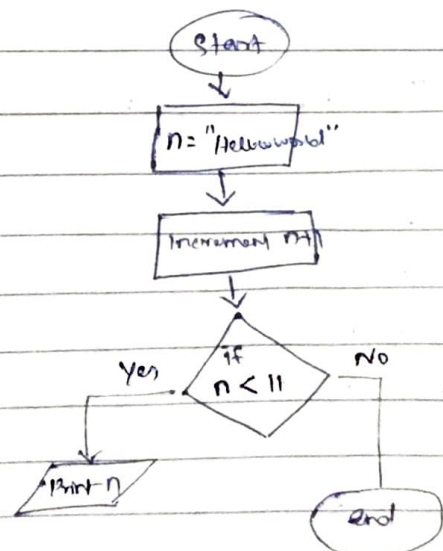 Start
n = "Hellowworld"
Increment n+1
if
n < 11
Yes
No
Print n
end